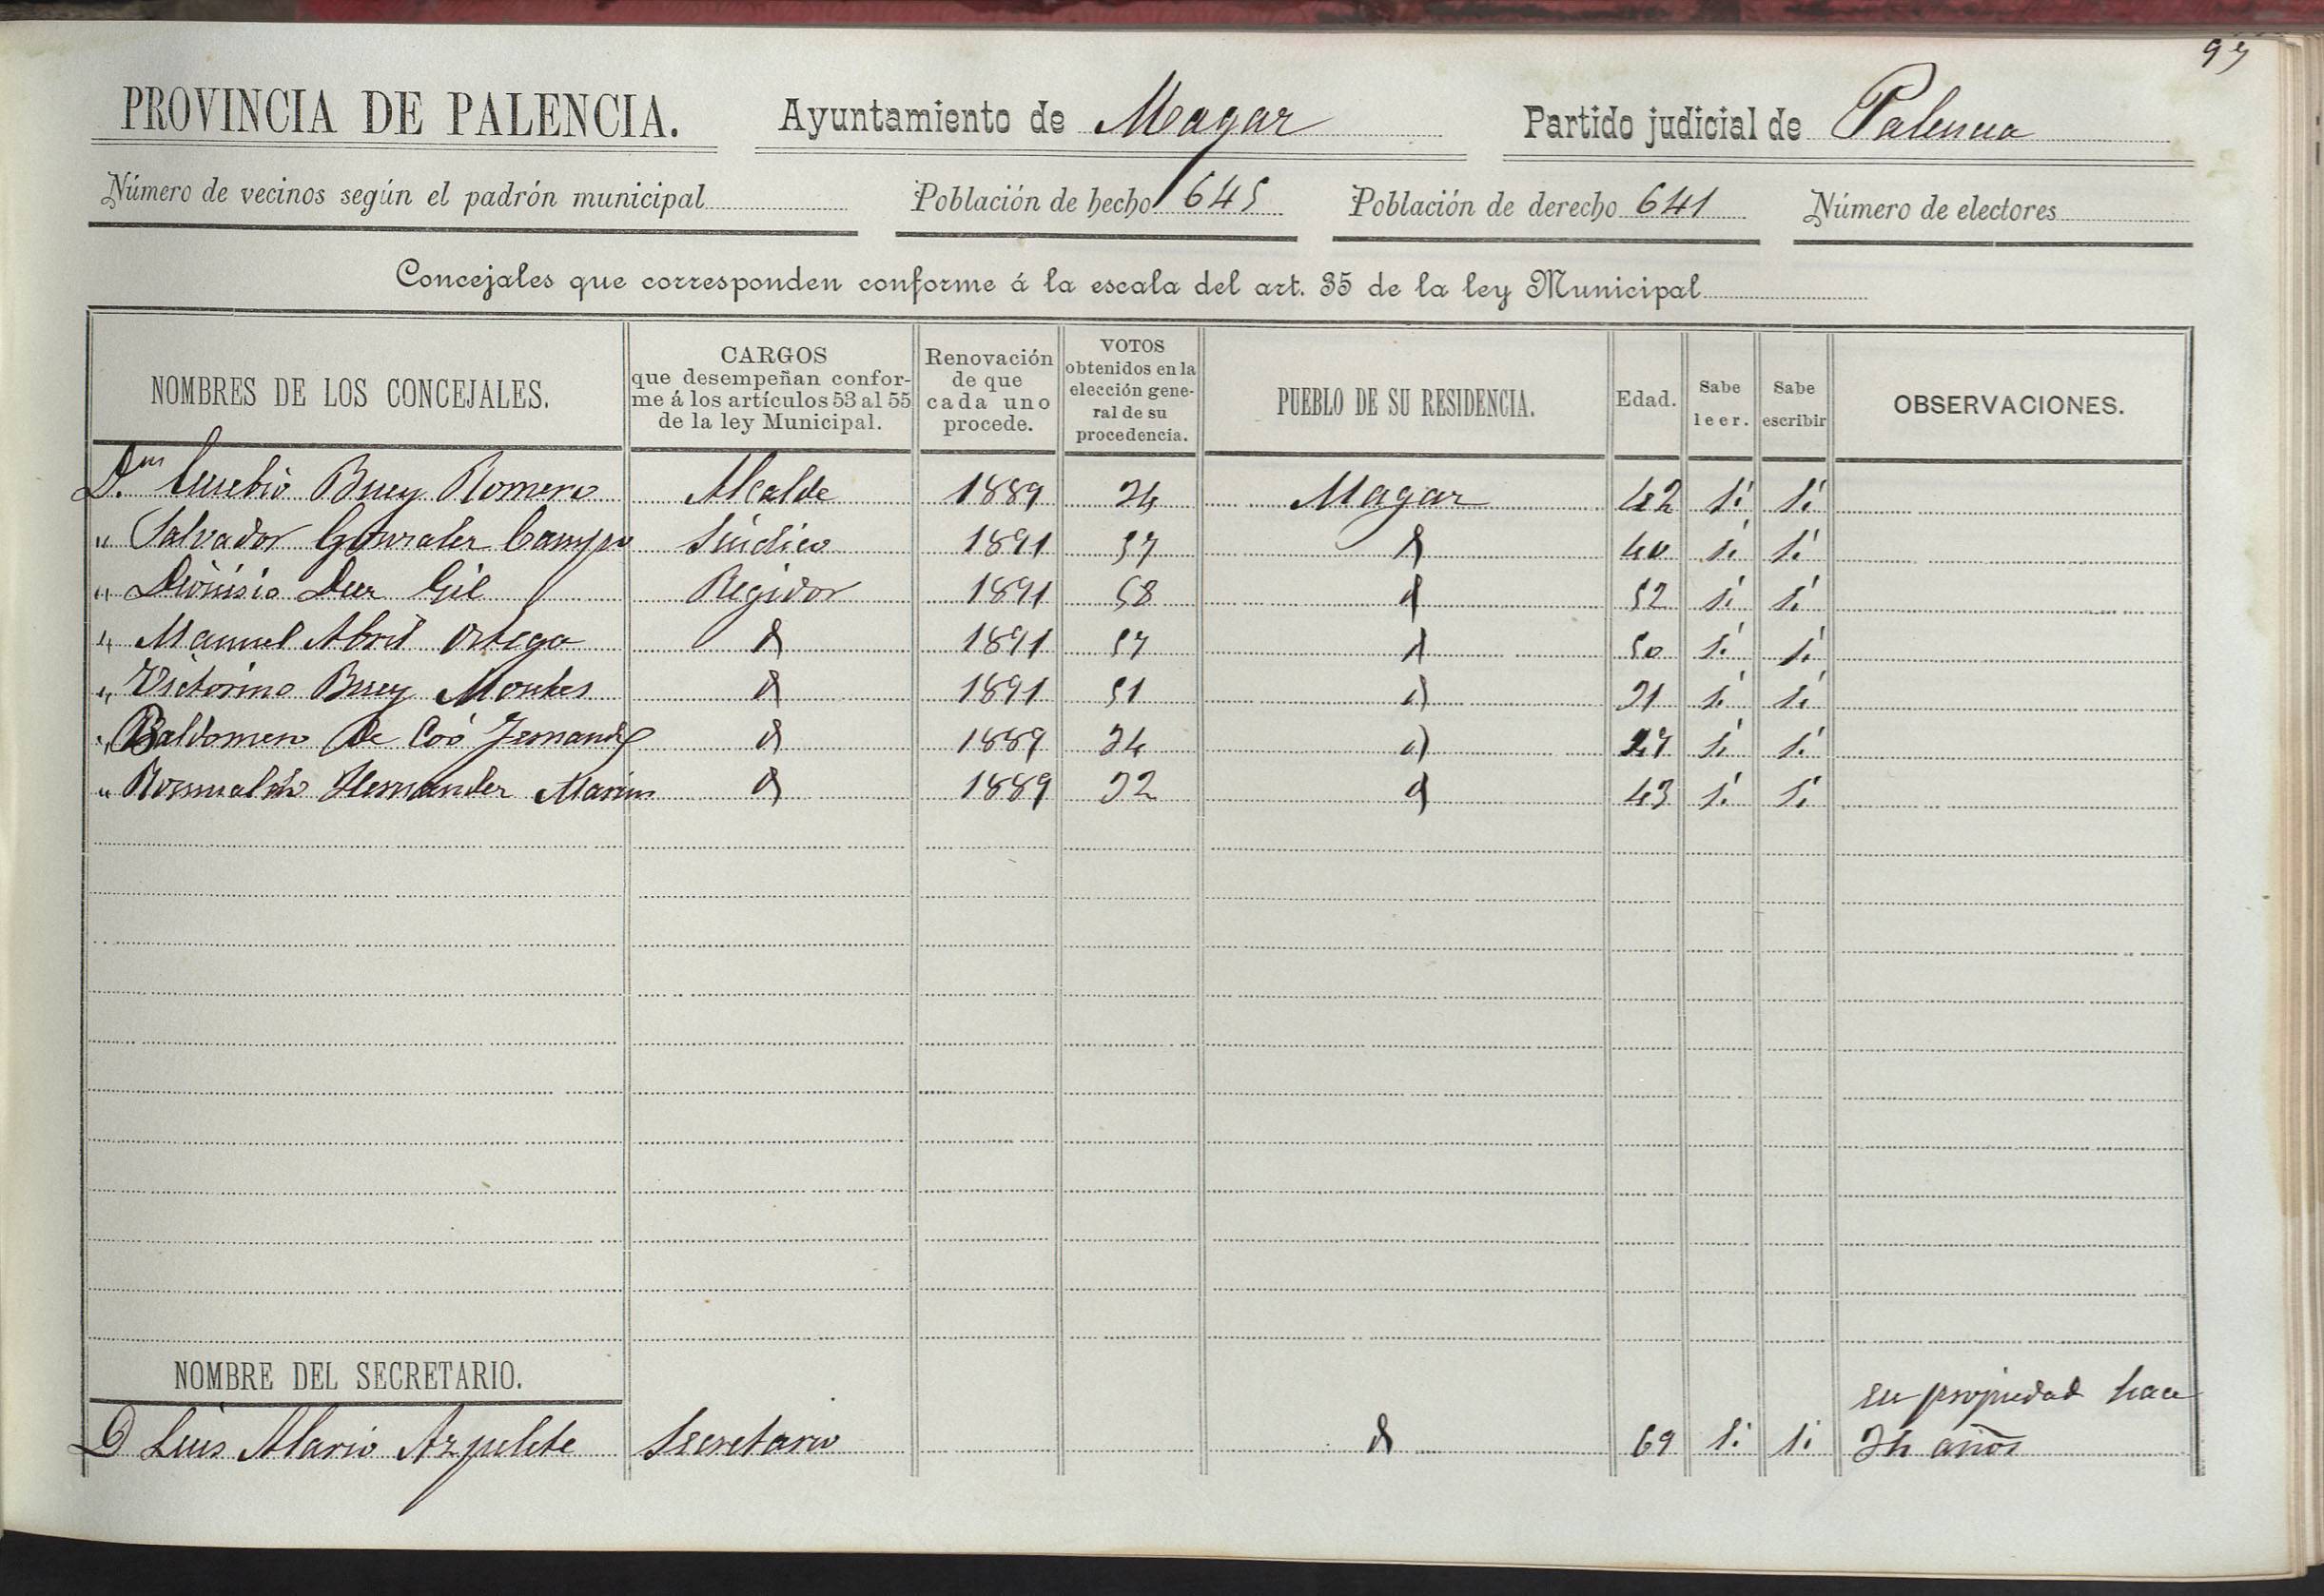 PROVINCIA DE PALENCIA. Ayuntamiento de Magaz Partido judicial de Palencia
Número de vecinos según el padrón municipal Población de hecho 645 Población de derecho 641 Número de electores
Concejales que corresponden conforme á la escala del art. 35 de la ley Municipal
NOMBRES DE LOS CONCEJALES. CARGOS que desempeñan confor-me á los artículos 53 al 55 de la ley Municipal. Renovación de que cada uno procede. VOTOS obtenidos en la elección gene-ral de su procedencia. PUEBLO DE SU RESIDENCIA. Edad. Sabe leer. Sabe escribir OBSERVACIONES.
D.n Eusebio Buey Romero Alcalde 1889 34 Magaz 42 si si
" Salvador Gonzalez Campo Sindico 1891 57 d 40 si si
" Dionisio Diez Gil Regidor 1891 58 d 52 si si
" Manuel Abril Ortega d 1891 57 d 50 si si
" Victorino Buey Montes d 1891 51 d 31 si si
" Baldomero de Coó Fernandz d 1889 34 d si si
" Romualdo Hernandez Marin d 1889 32 d 43 si si
NOMBRE DEL SECRETARIO.
D Luis Alario Azpeleta Secretario d 69 si si en propiedad hace
34 años